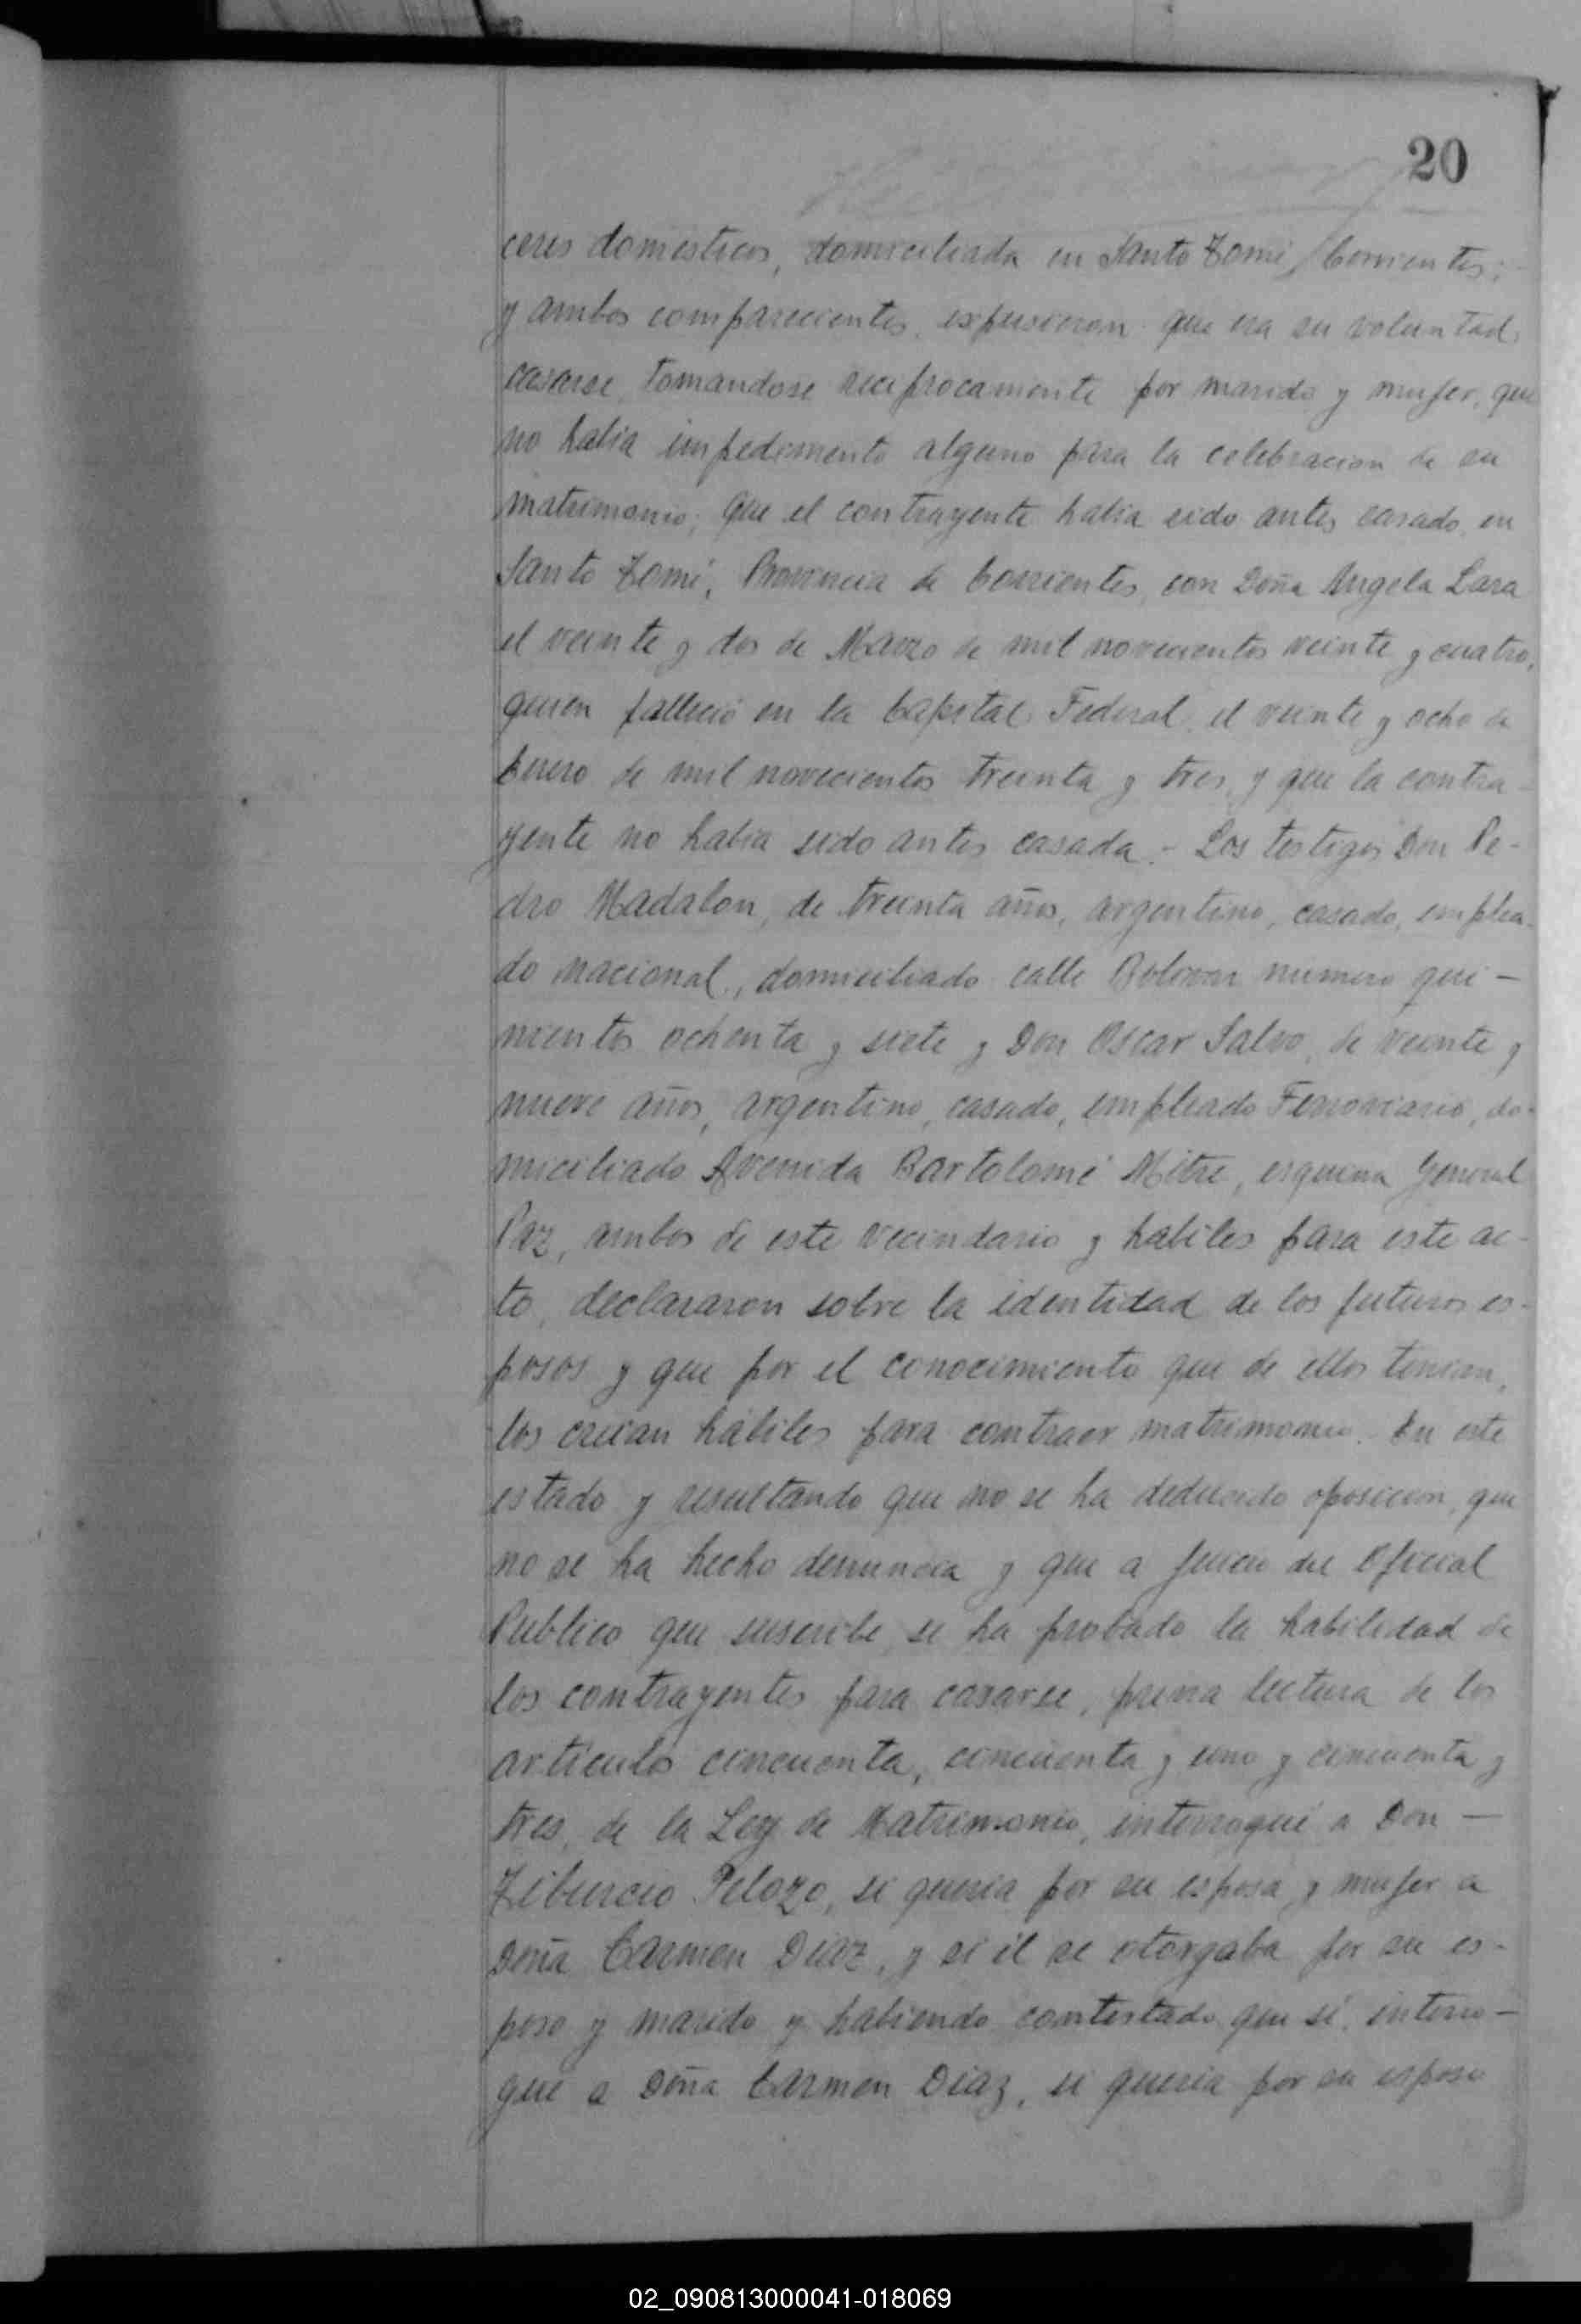 20
ceres domesticos, domiciliada en Santo Tomé, Corrientes;
y ambos comparecientes, expusieron que era su voluntad
casarse, tomandose reciprocamente por marido y mujer, que
no habia impedimento alguno para la celebracion de su
matrimonio; que el contrayente habia sido antes casado, en
Santo Tomé, Provincia de Corrientes, con Doña Angela Lara
el veinte y dos de Marzo de mil novecientos veinte y cuatro,
quien falleció en la Capital Federal, el veinte y ocho de
Enero de mil novecientos treinta y tres, y que la contra-
yente no habia sido antes casada.- Los testigos Don Pe-
dro Madalon, de treinta años, argentino, casado, emplea-
do nacional, domiciliado calle Bolivar numero qui-
nientos ochenta y siete y Don Oscar Salvo, de veinte y
nueve años, argentino, casado, empleado Ferroviario, do-
miciliado Avenida Bartolomé Mitre, esquina General
Paz, ambos de este vecindario y habiles para este ac-
to, declararon sobre la identidad de los futuros es-
posos y que por el conocimiento que de ellos tenian,
los creian hábiles para contraer matrimonio. En este
estado y resultando que no se ha deducido oposicion, que
no se ha hecho denuncia y que a juicio del Oficial
Publico que suscribe, se ha probado la habilidad de
los contrayentes para casarse, previa lectura de los
articulos cincuenta, cincuenta y uno y cincuenta y
tres, de la Ley de Matrimonio, interrogué a Don -
Tiburcio Pelozo, si queria por su esposa y mujer a
Doña Carmen Diaz, y si él se otorgaba por su es-
poso y marido y habiendo contestado que sí, interro-
gué a Doña Carmen Diaz, si queria por su esposo
02_090813000041-018069